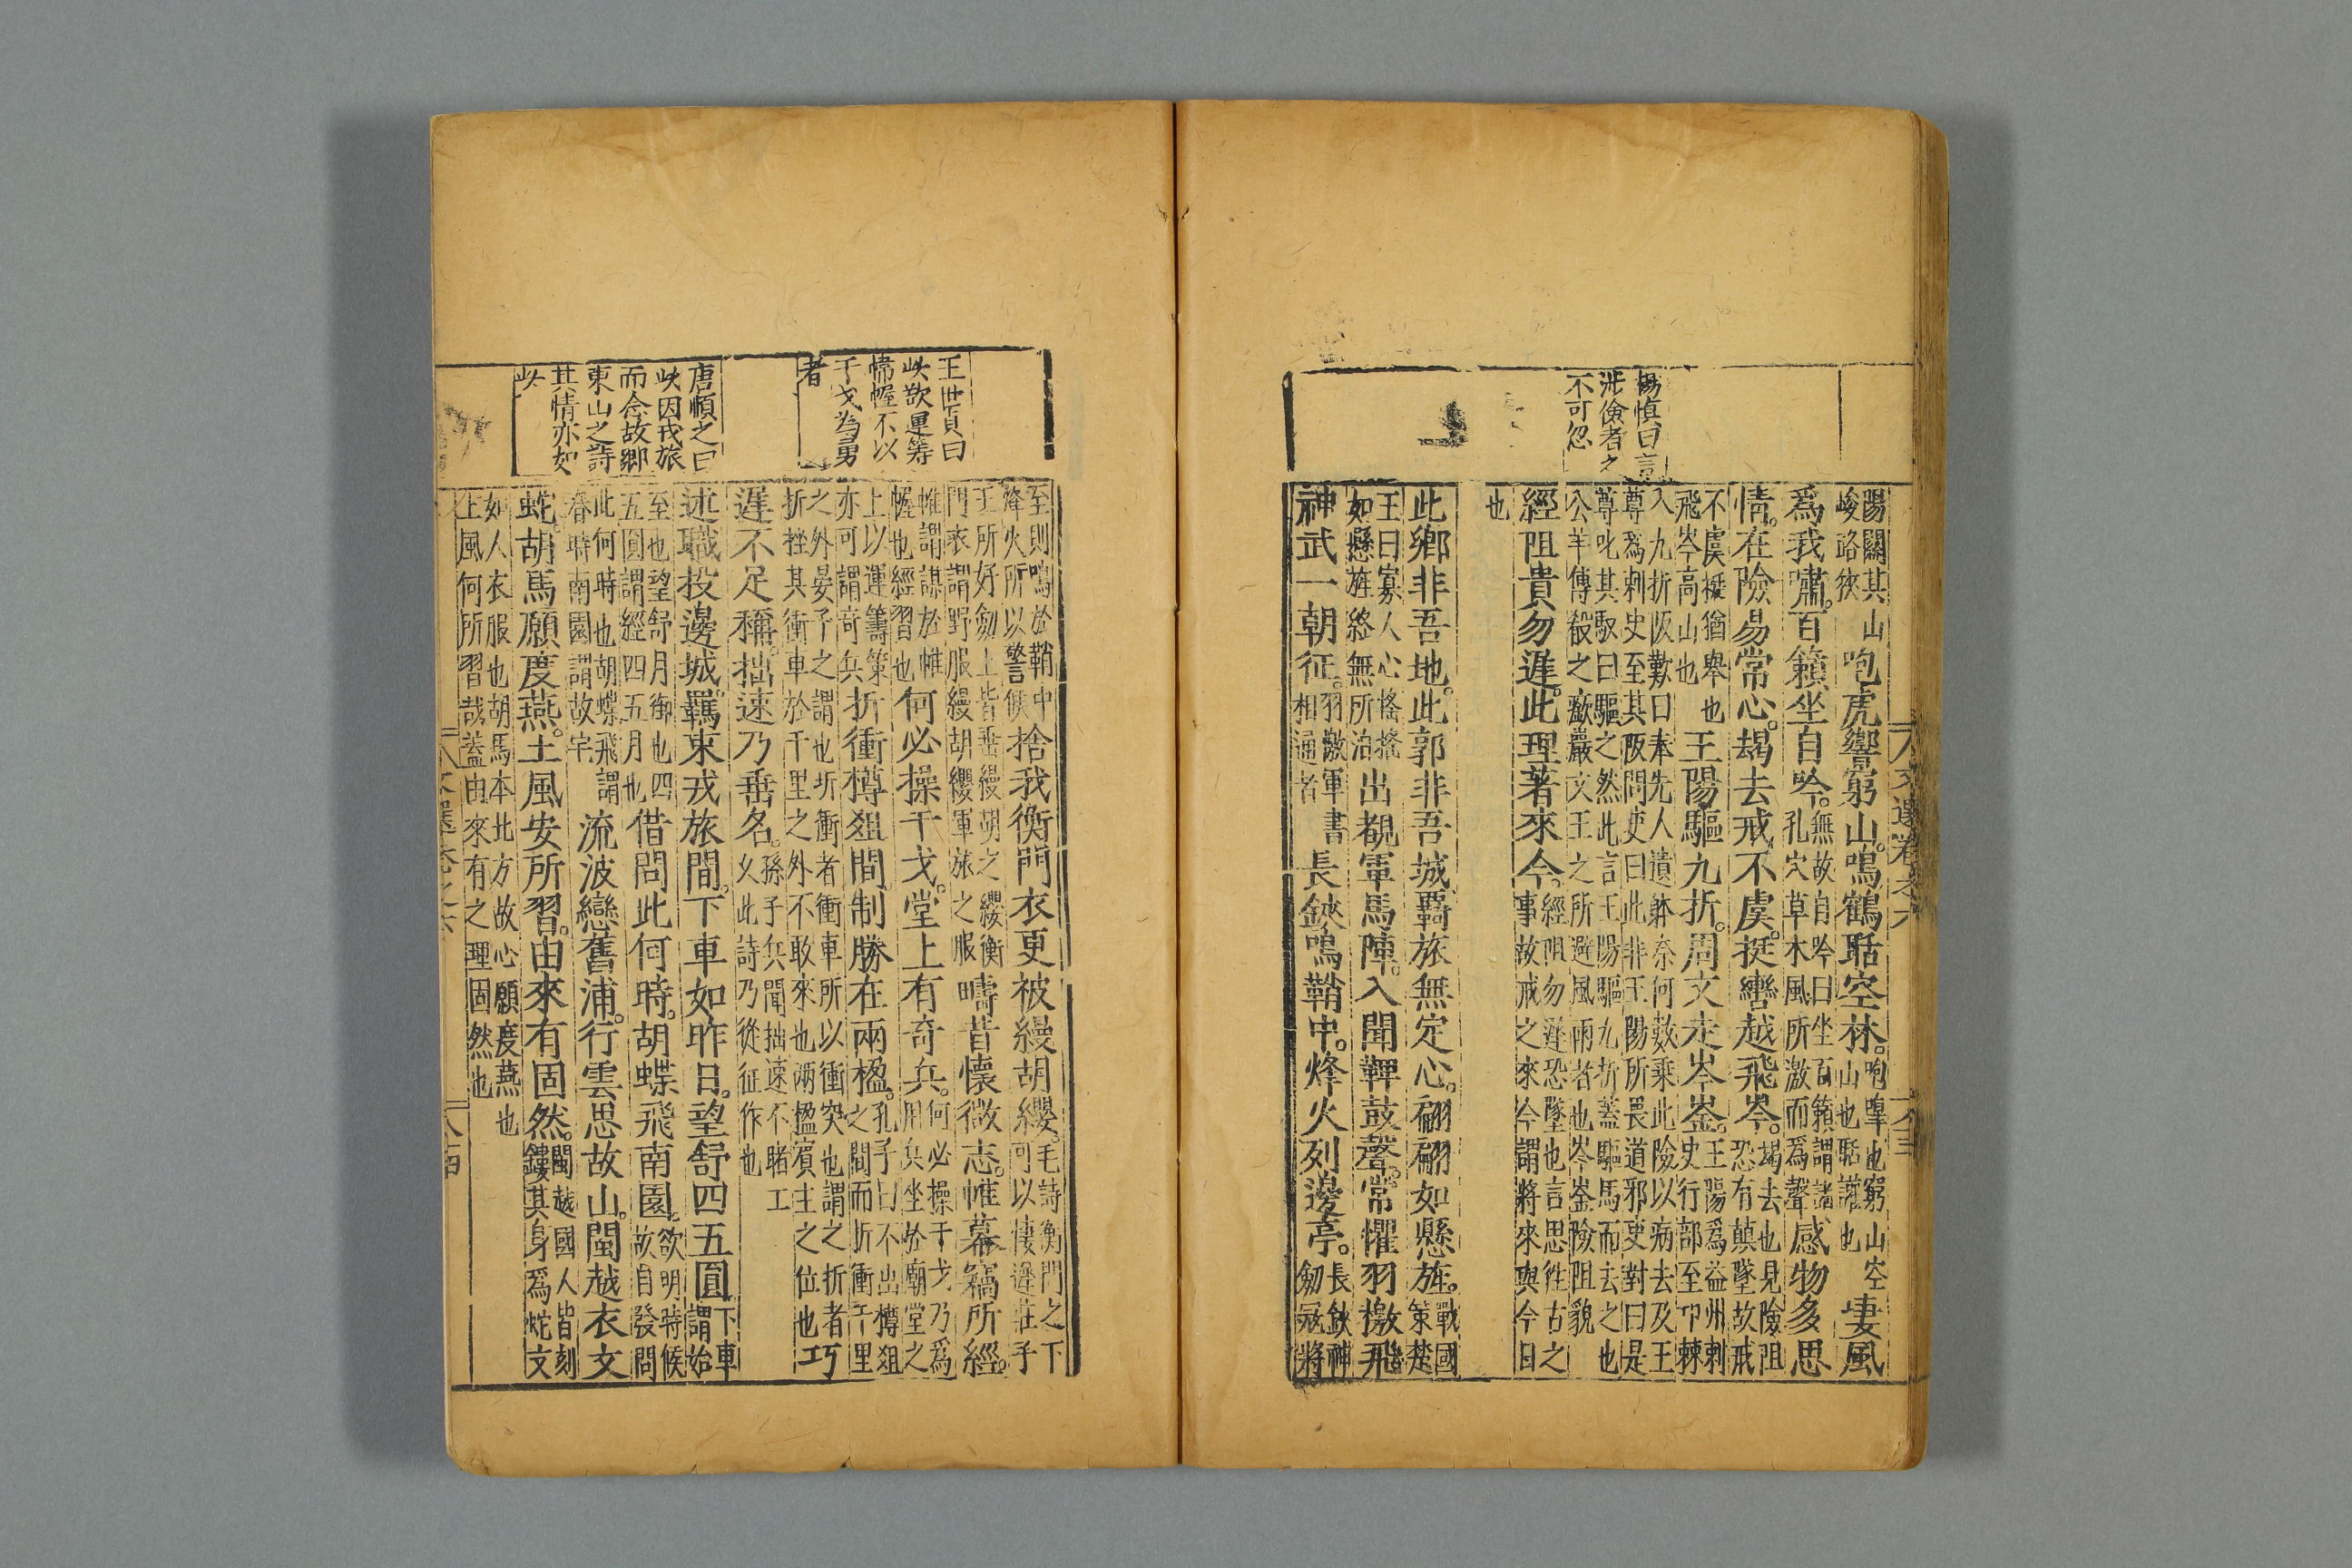 楊慎曰言
涉儉者之
不可忽
陽關其山
峻路狹
咆虎響窮山。鳴鶴聒空林。
咆嘷也窮山空
山也聒讙也
淒風
爲我嘯。百籟坐自吟。
無故自吟曰坐百籟謂諸
孔穴草木風所激而爲聲
感物多思
情。在險易常心。朅去戒不虞。挺轡越飛岑。
朅去也見險阻
恐有顛墜故戒
不虞挺猶舉也
飛岑高山也
王陽驅九折。周文走岑崟。
王陽爲益州刺
史行部至邛棘
入九折阪歎曰奉先人遺躰奈何數乘此險以病去及王
尊爲刺史至其阪問吏曰此非王陽所畏道邪吏對曰是
尊叱其馭曰驅之然此言王陽驅九折蓋驅馬而去之也
公羊傳殽之嶔巖文王之所避風雨者也岑崟險阻貌
經阻貴勿遲。此理著來今。
經阻勿遲恐墜也言思徃古之
事故戒之來今謂將來與今日
也
此鄉非吾地。此郭非吾城。羇旅無定心。翩翩如懸旌。
戰國
策楚
王曰寡人心搖搖
如懸旌終無所泊
出覩軍馬陣。入聞鞞鼓聲。常懼羽檄飛
神武一朝征。
羽檄軍書
相通者
長鋏鳴鞘中。烽火列邊亭。
長鋏神
劒冠將
文選卷之六
王世貞曰
此欲運筹
帷幄不以
干戈為勇
者
唐順之曰
此因戎旅
而念故鄉
東山之詩
其情亦如
此
至則鳴於鞘中
烽火所以警候
捨我衡門衣更被縵胡纓。
毛詩衡門之下
可以棲遲莊子
王所好劒士皆垂縵胡之纓衡
門衣謂野服縵胡纓軍旅之服
疇昔懷微志。帷幕竊所經。
帷謂謀於帷
幄也經習也
何必操干戈。堂上有奇兵。
何必操干戈乃爲
用兵坐於廟堂之
上以運籌策
亦可謂奇兵
折衝樽俎間制勝在兩楹。
孔子曰不出樽俎
之間而折衝千里
之外晏子之謂也折衝者衝車所以衝突也謂之折者
折挫其衝車於千里之外不敢來也两楹賓主之位也
巧
遲不足稱。拙速乃垂名。
孫子兵聞拙速不睹工
久此詩乃從征作也
述職投邊城。羈束戎旅間。下車如昨日。望舒四五圓
下車
謂始
至也望舒月御也四
五圓謂經四五月也
借問此何時。胡蝶飛南園。
欲明時候
故自發問
此何時也胡蝶飛謂
春時南園謂故宇
流波戀舊浦。行雲思故山。閩越衣文
蛇。胡馬願度燕。土風安所習。由來有固然。
閩越國人皆刻
鏤其身爲蛇文
如人衣服也胡馬本北方故心願度燕也
土風何所習哉蓋由來有之理固然也